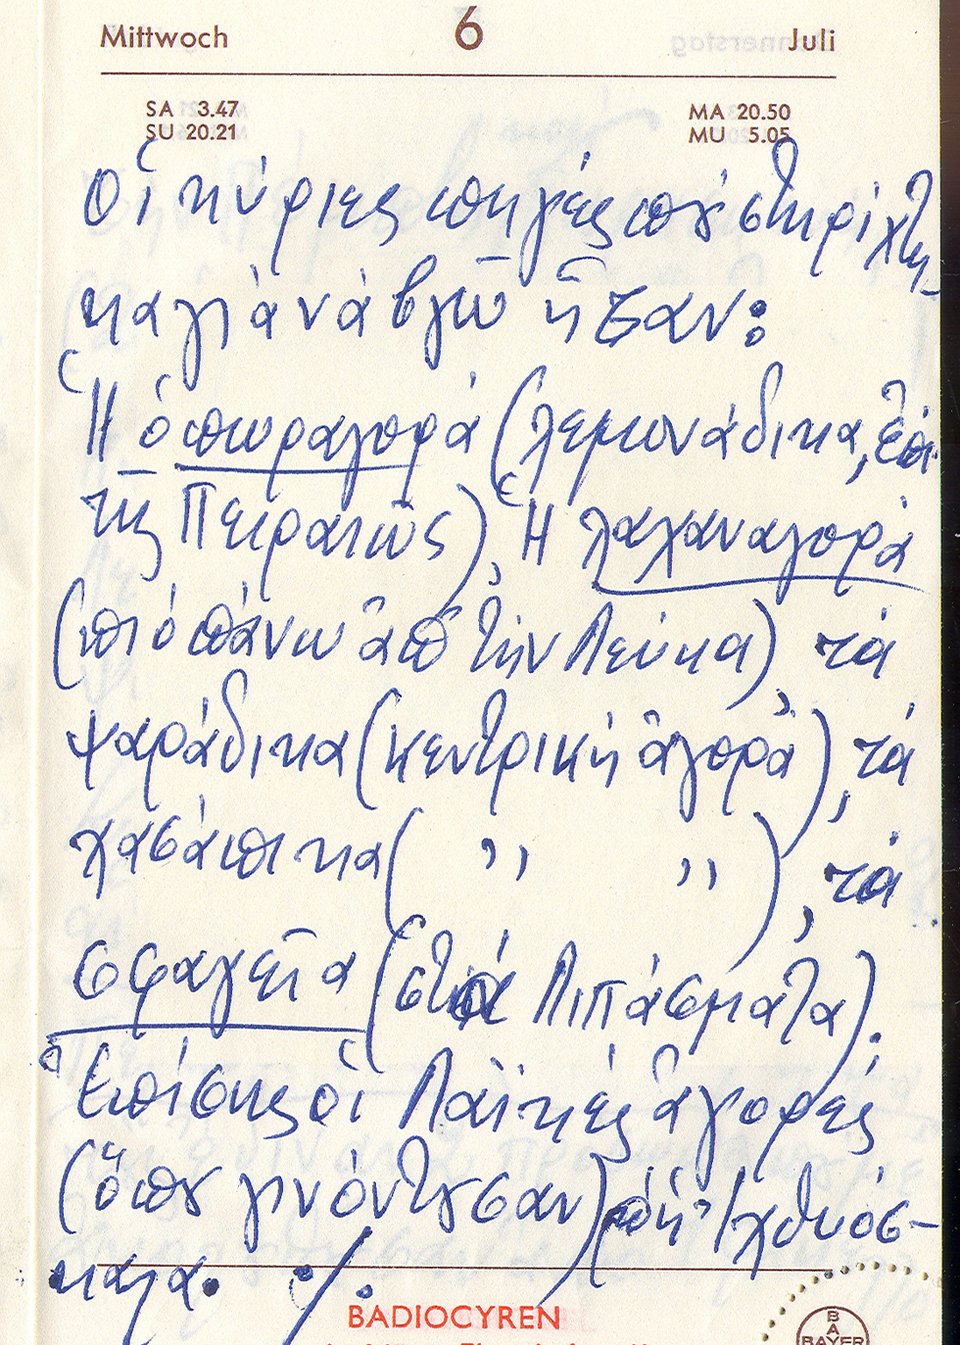 Mittwoch 6 Juli
SA 3.47 MA 20.50
SU 20.21 MU 5.05
Οἱ κύριες πηγὲς ποὺ στηρίχτη-
κα γιὰ νὰ βγῶ ἦταν:
Ἡ ὀπωραγορά (λεμονάδικα, ἐπὶ
τῆς Πειραιῶς), Ἡ λαχαναγορὰ
(πιὸ πάνω ἀπ' τὴν Λεύκα), τὰ
ψαράδικα (κεντρικὴ ἀγορὰ), τὰ
χασάπικα ( ,, ,, ), τὰ
σφαγεῖα (στὰ Λιπάσματα).
Ἐπίσης οἱ Λαϊκὲς ἀγορές
(ὅπου γινόντουσαν) Ἰχθυόσ-
καλα. ./.
BADIOCYREN
BAYER